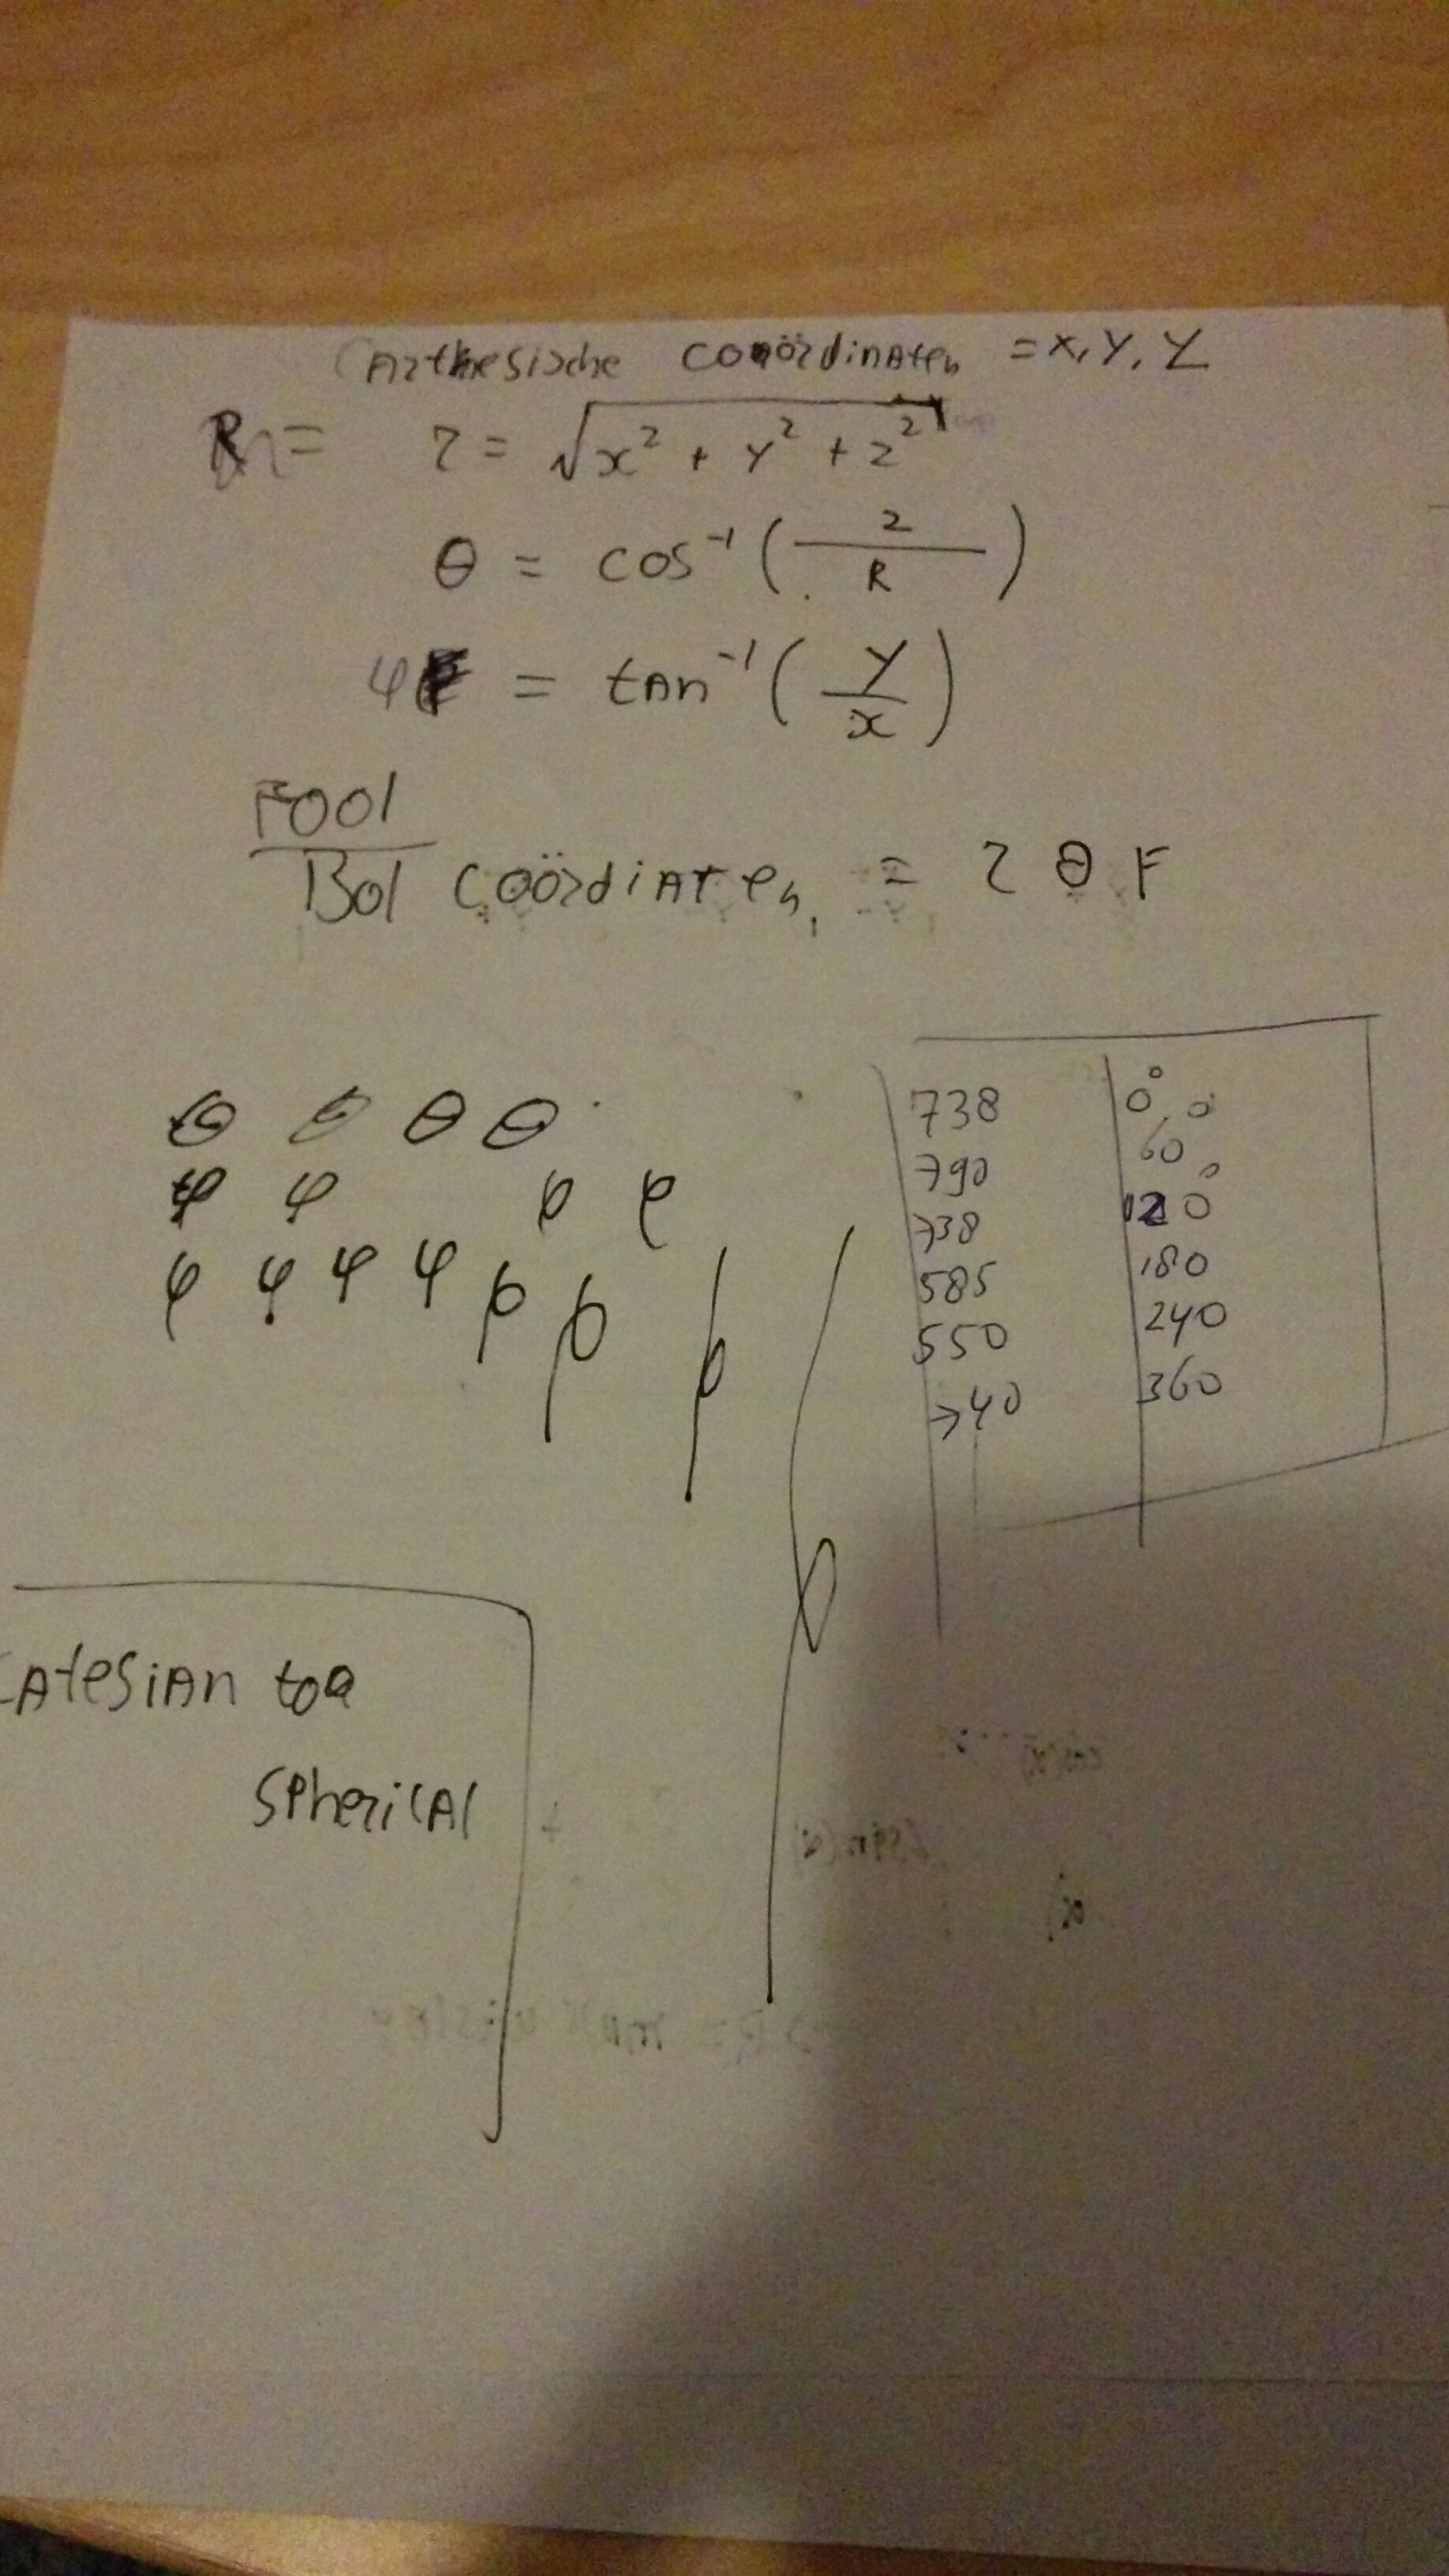 Carthesische coördinaten = x, y, z
R = r = √x² + y² + z²
θ = cos⁻¹ ( z / R )
φ = tan⁻¹ ( y / x )
Pool
Bol coördiaten = r θ F
θ θ θ θ
φ φ φ φ
φ φ φ φ φ φ φ φ
738 0°
790 60°
738 120°
585 180
550 240
740 360
Catesian to
spherical